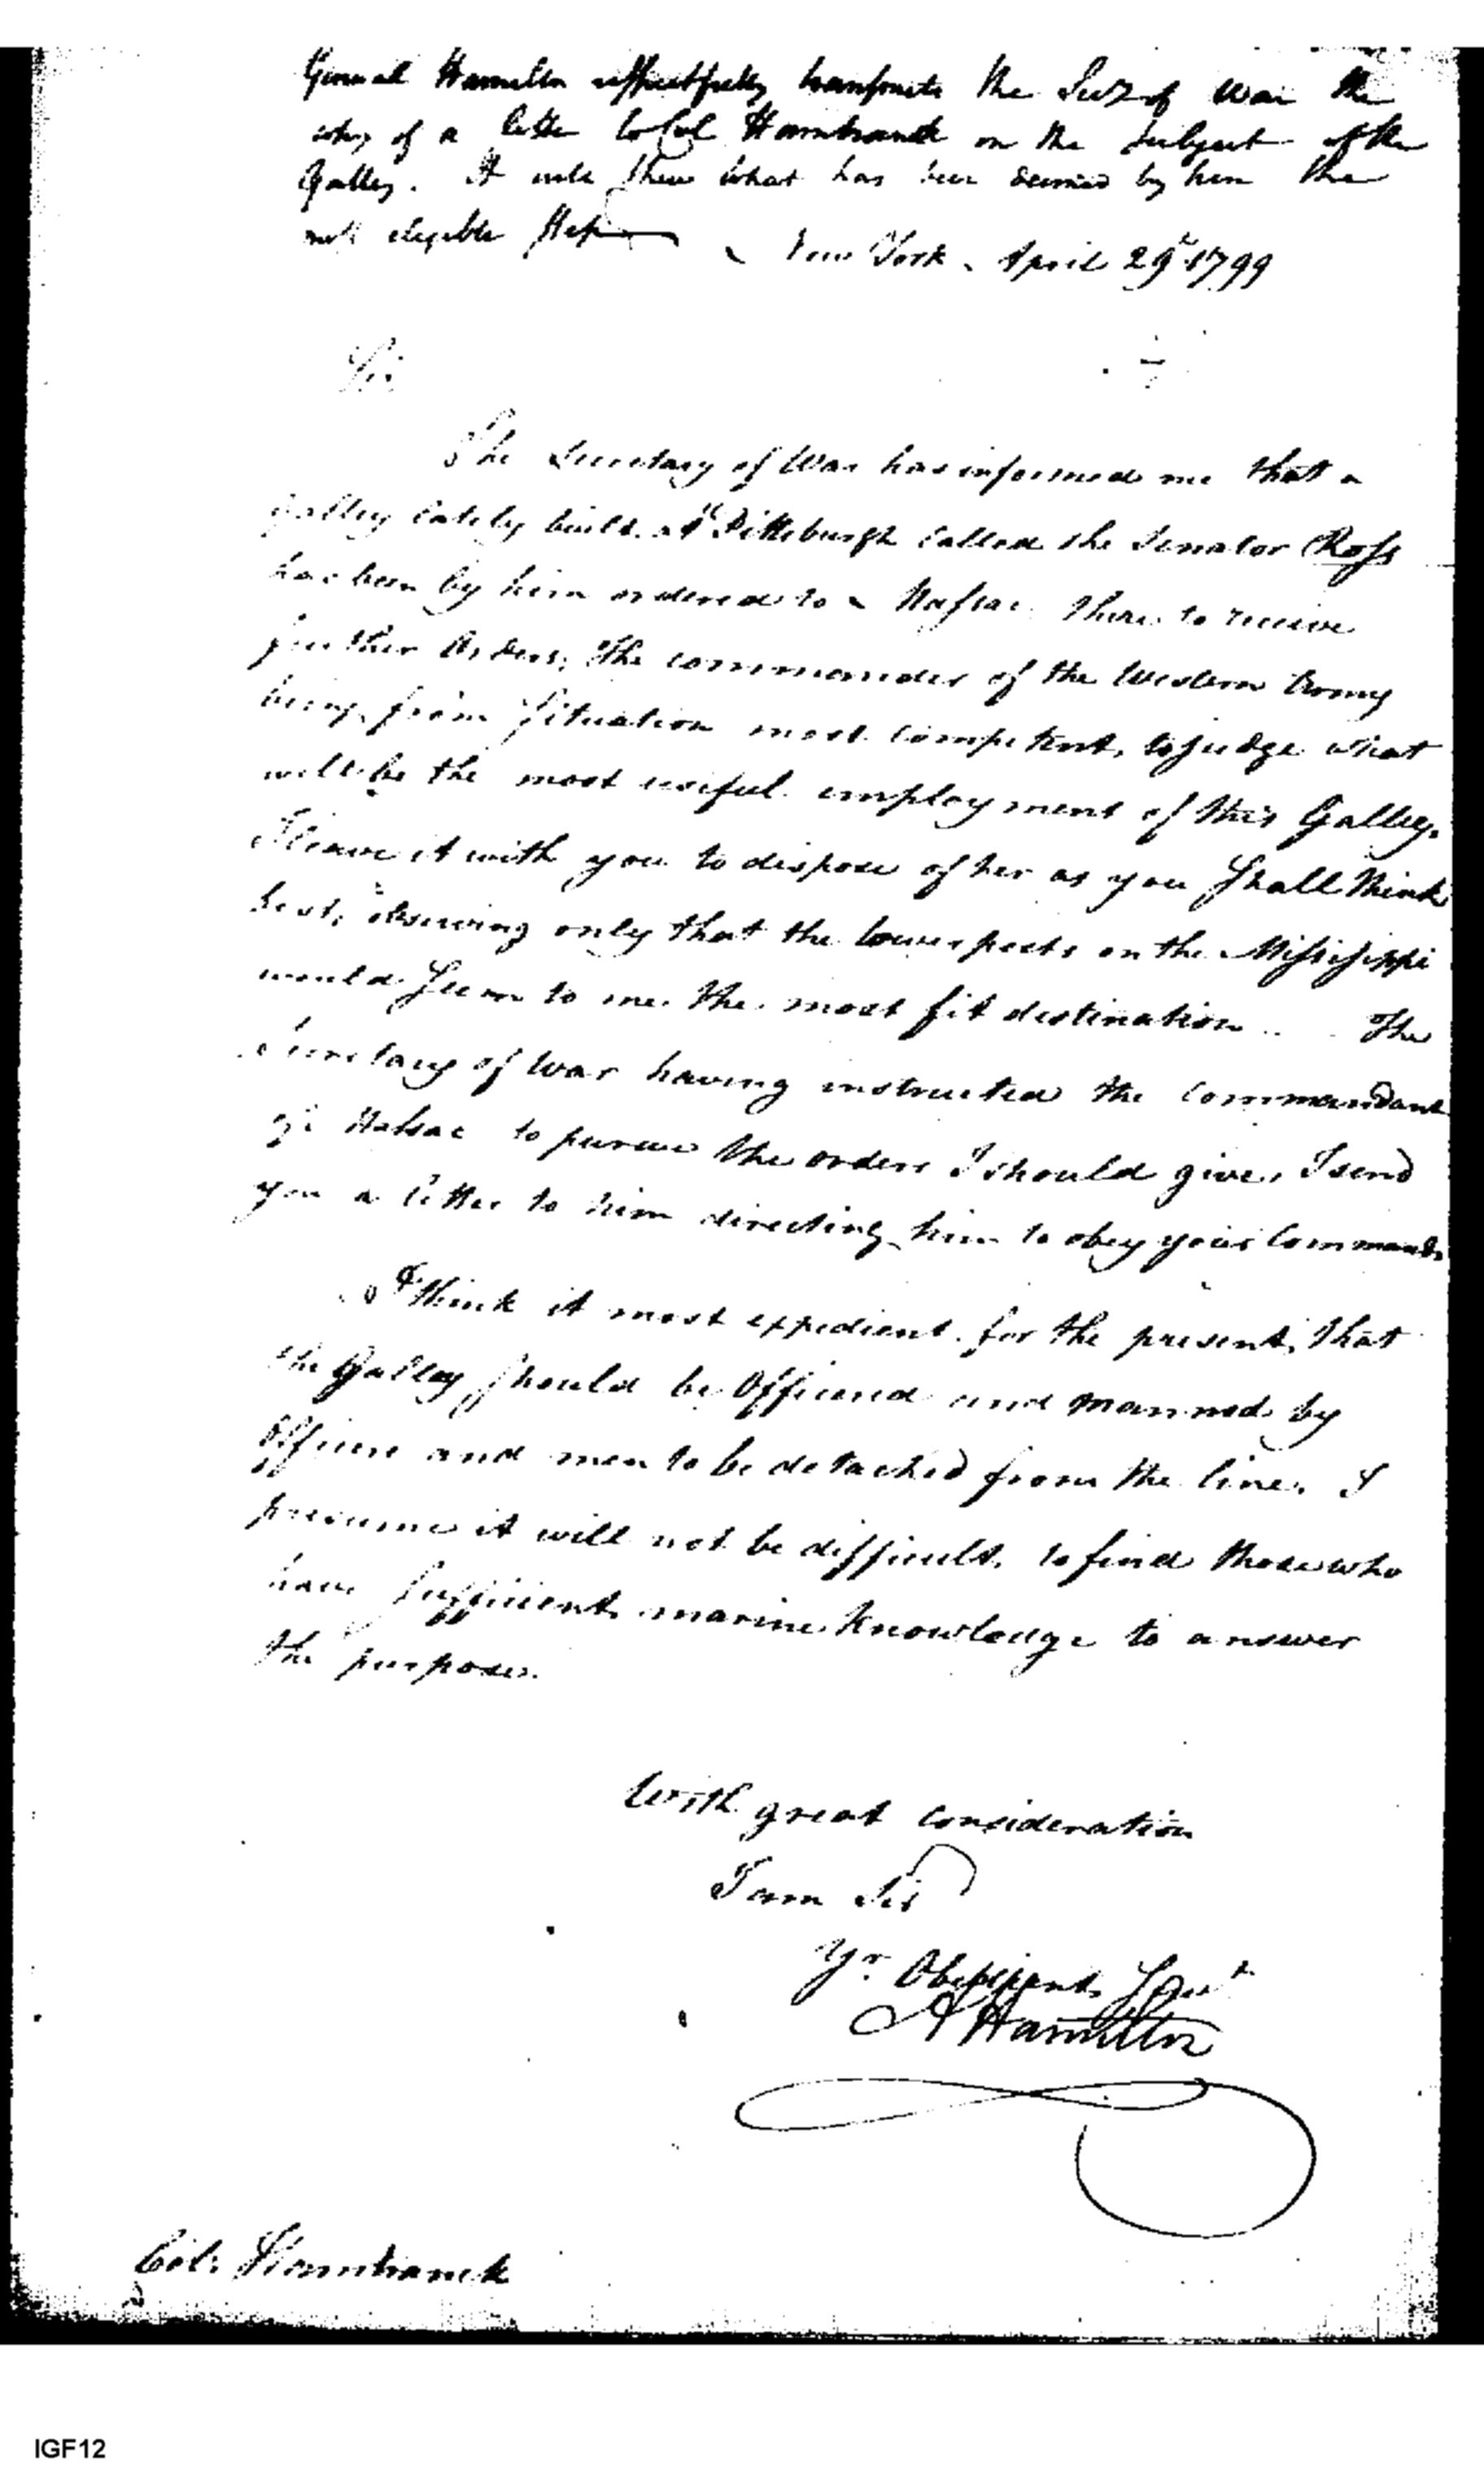 General Hamilton respectfully transmits the Secy of War the
copy of a letter to Col Hamtramck on the subject of the
Galley. It will shew what has been deemed by him the
most eligible step
New York April 29th 1799
Sir
The Secretary of War has informed me that a
galley lately built at Pittsburgh called the Senator Ross
has been by him ordered to Massac there to receive
further Orders, The commander of the Western Army
being from situation most competent, to judge what
will be the most useful employment of this Galley,
I leave it with you to dispose of her as you shall think
best, observing only that the lower posts on the Mississippi
would seem to me the most fit destination.. The
Secretary of War having instructed the Commandant
of Massac to pursue the orders I should give, I send
you a letter to him directing him to obey your Commands
I think it most expedient for the present, that
the Galley should be Officered and manned by
Officers and men to be detached from the line. I
presume it will not be difficult, to find those who
have sufficient marine knowledge to answer
the purpose.
With great consideration
I am Sir
Yr. Obedient Servt
A Hamilton
Col: Hamtramck
IGF12